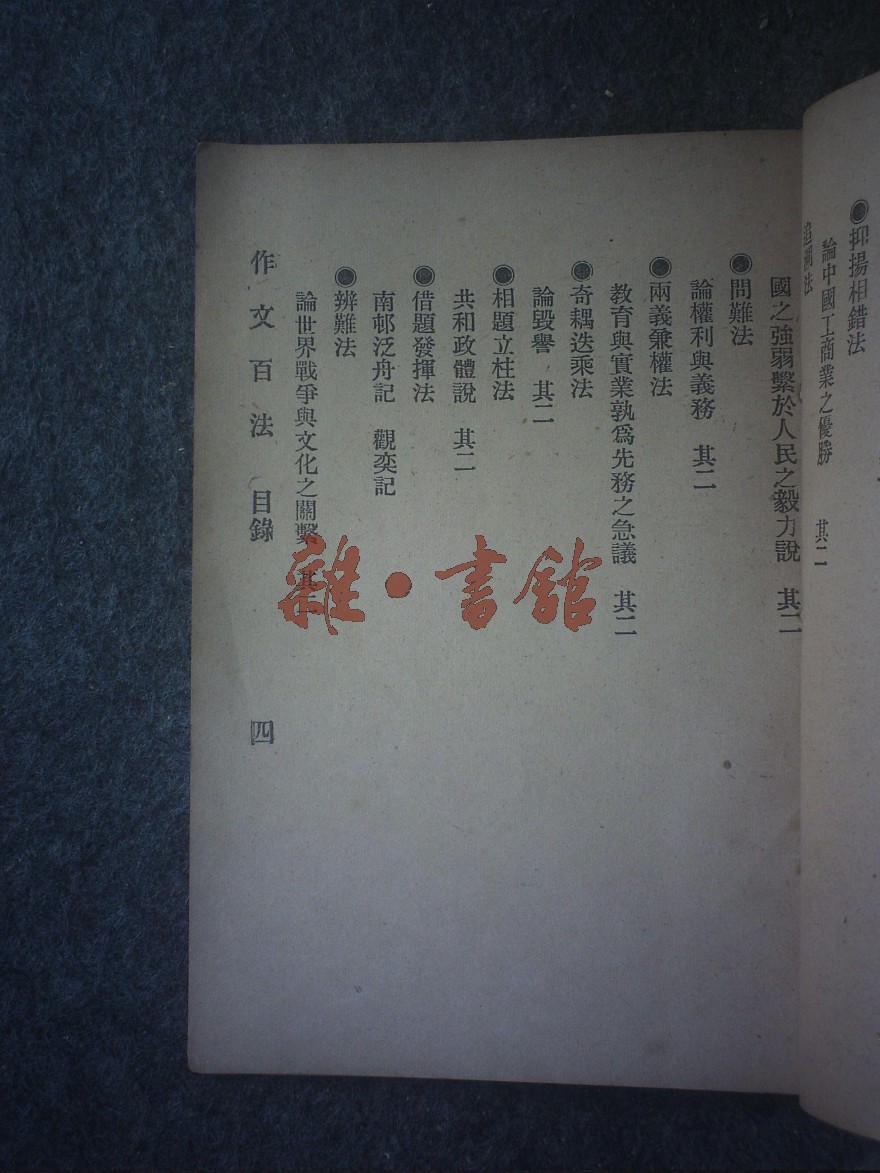 ●抑揚相錯法
論中國工商業之優勝　其二
法
國之強弱繫於人民之毅力說　其二
●問難法
論權利與義務　其二
●兩義兼權法
教育與實業孰爲先務之急議　其二
●奇耦迭乘法
論毀譽　其二
●相題立柱法
共和政體說　其二
●借題發揮法
南邨泛舟記　觀奕記
●辨難法
論世界戰爭與文化之關繫　其二
作文百法　目錄　四
雜·書館